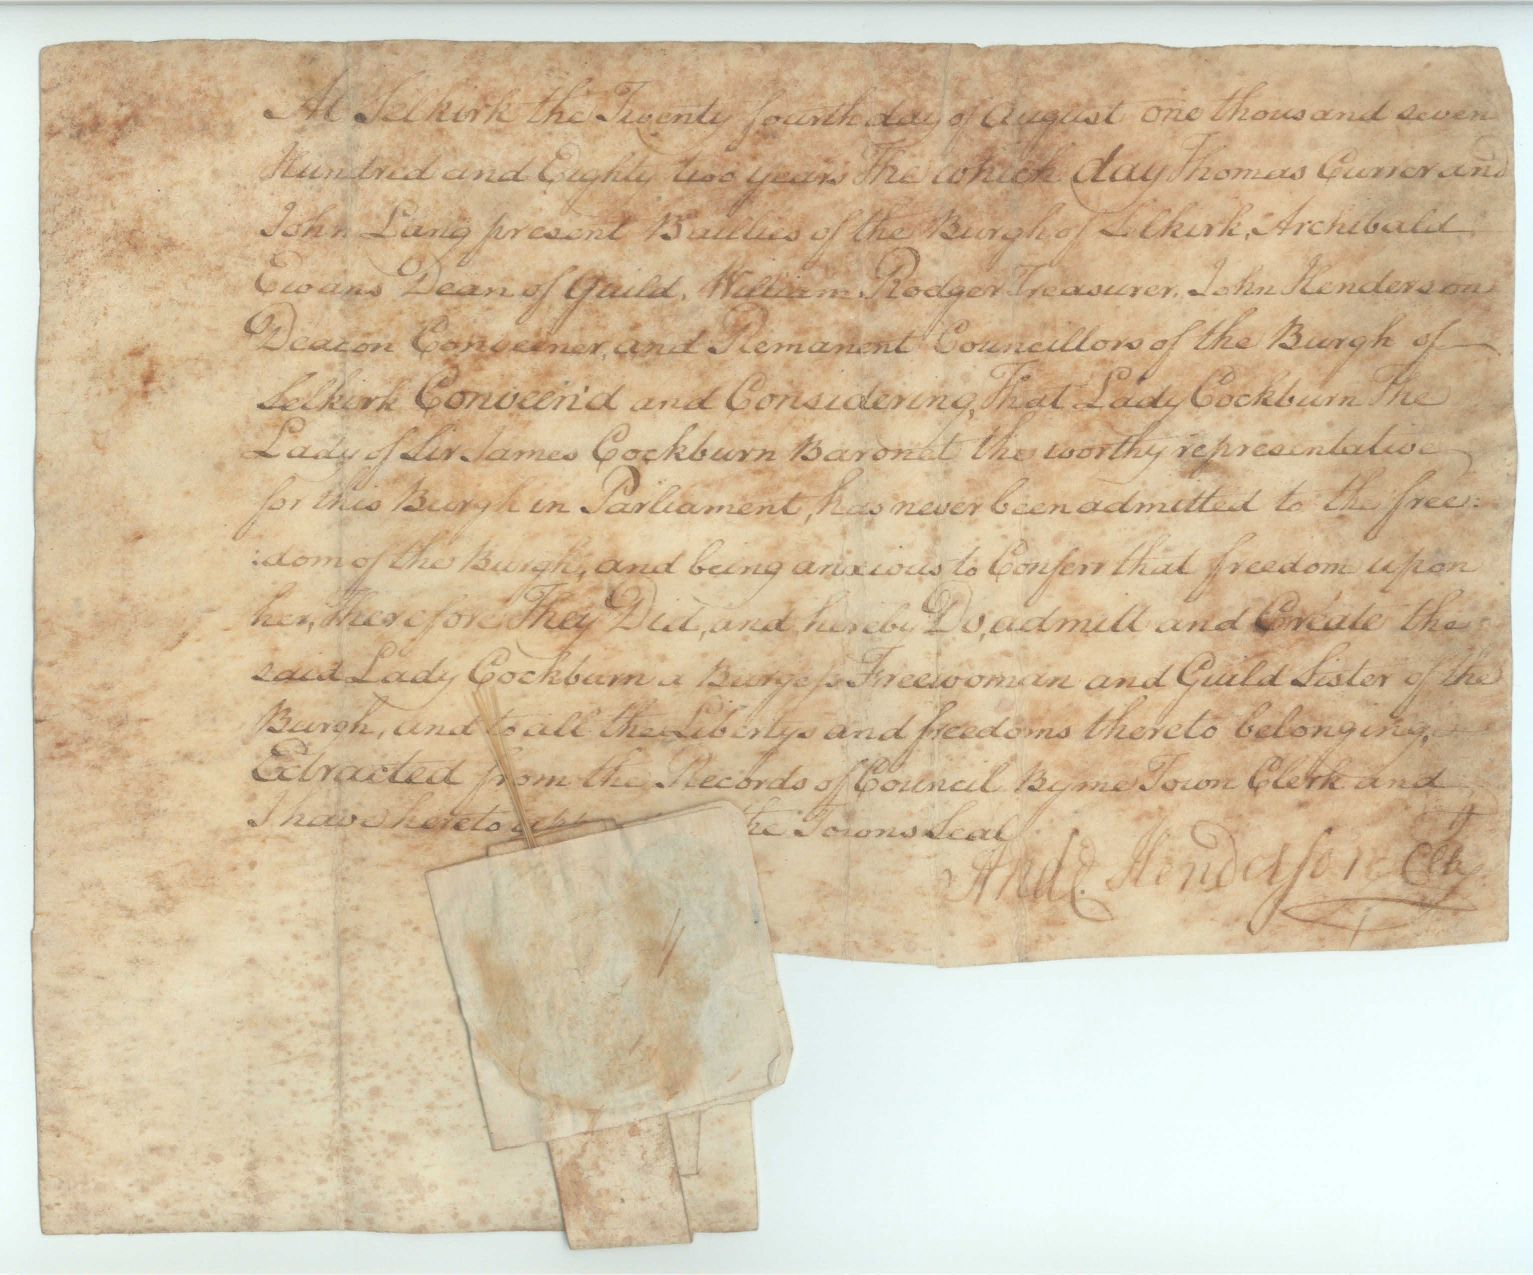 At Selkirk the Twenty fourth day of August one thousand seven
Hundred and Eighty two years The which day Thomas Currer and
John Lang present Baillies of the Burgh of Selkirk, Archibald
Ewans Dean of Guild, William Rodger Treasurer, John Henderson
Deacon Conveener, and Remanent Councillors of the Burgh of
Selkirk Conveen'd and Considering, That Lady Cockburn The
Lady of Sir James Cockburn Baronet the worthy representative
for this Burgh in Parliament, has never been admitted to the free:
:dom of the Burgh, and being anxious to Conferr that freedom upon
her, Therefore They Did, and hereby Do, admitt and Create the
said Lady Cockburn a Burgess Freewoman and Guild Sister of the
Burgh, and to all the Libertys and freedoms thereto belonging,
Extracted from the Records of Council By me Town Clerk and
I have hereto the Towns Seal
And: Henderson Clk